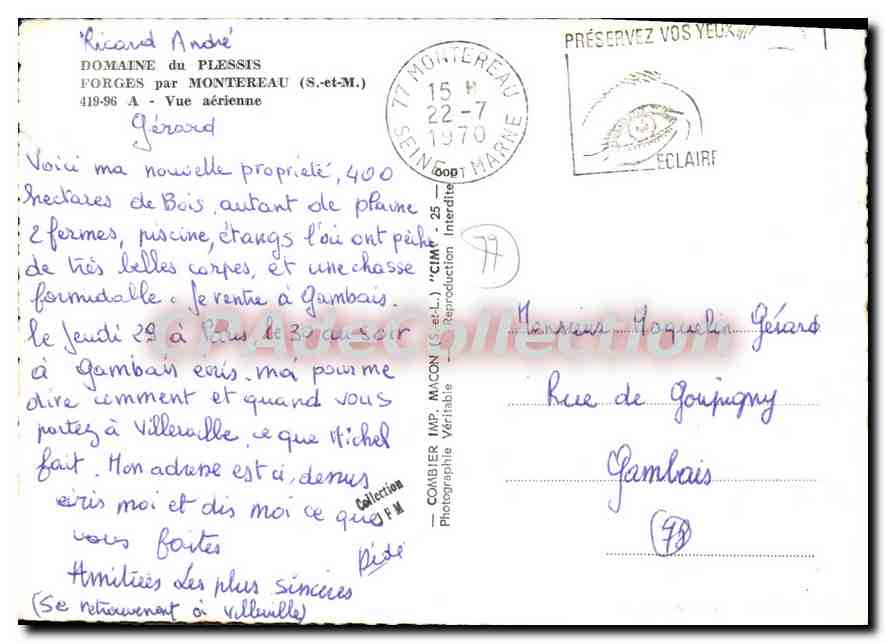 Ricard André
DOMAINE du PLESSIS
FORGES par MONTEREAU (S.-et-M.)
419-96 A - Vue aérienne
Gérard
Voici ma nouvelle propriété, 400
hectares de Bois, autant de plaine
2 fermes, piscine, étangs l'où ont pêche
de très belles carpes, et une chasse
formidable. Je rentre à Gambais.
le Jeudi 29 à Paris, le 30 au soir
à Gambais ecris. moi pour me
dire comment et quand vous
partez à Villerville, ce que Michel
fait. Mon adresse est ci, dessus
ecris moi et dis moi ce que
vous faites
Dédé
Amitiées Les plus sincères
(Se retrouvent à Villerville)
77 MONTEREAU
15 H
22 - 7
1970
SEINE ET MARNE
PRÉSERVEZ VOS YEUX
ECLAIRE
— COMBIER IMP. MACON (S.-et-L.) "CIM" - 25 —
Photographie Véritable - Reproduction Interdite
77
Collection
JFM
Monsieur Moquelin Gérard
Rue de Goupigny
Gambais
(78)
CPAdeCollection